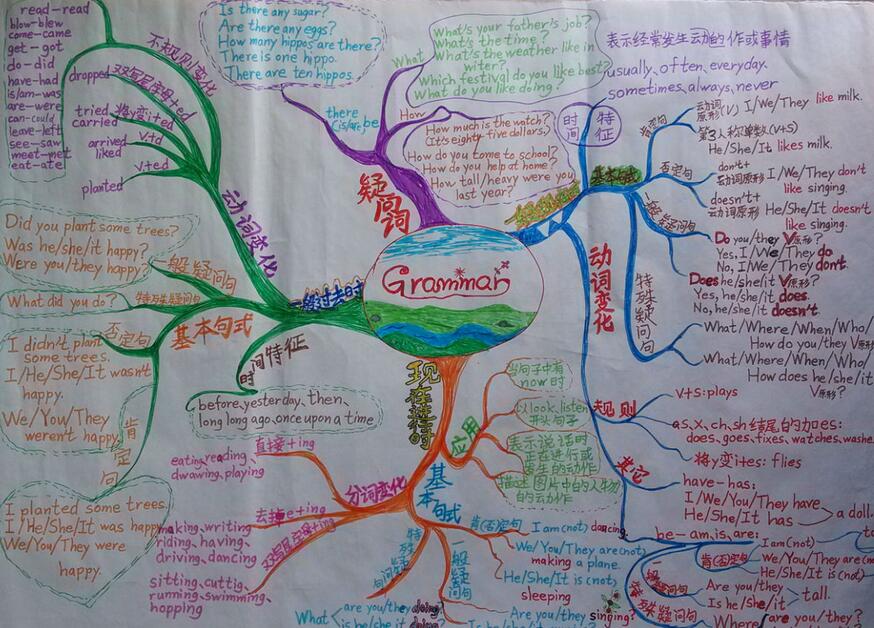 read—read
blow—blew
come—came
get—got
do—did
have—had
is/am—was
are—were
can—could
leave—left
see—saw
meet—met
eat—ate
不规则变化
dropped
双写尾字母+ed
tried
carried
将y变i+ed
arrived
liked
V+d
planted
V+ed
动词变化
Did you plant some trees?
Was he/she/it happy?
Were you/they happy?
一般疑问句
What did you do?
特殊疑问句
I didn't plant
some trees.
I/He/She/It wasn't
happy.
We/You/They
weren't happy.
否定句
基本句式
肯定句
I planted some trees.
I/He/She/It was happy.
We/You/They were
happy.
时间特征
before、yesterday、then、
long long ago、once upon a time
一般过去时
Is there any sugar?
Are there any eggs?
How many hippos are there?
There is one hippo.
There are ten hippos.
there
(is/are) be
What
What's your father's job?
What's the time?
What's the weather like in
witer?
Which festival do you like best?
What do you like doing?
How
How much is the watch?
(It's eighty five dollars.)
How do you tome to school?
How do you help at home?
How tall/heavy were you
last year?
疑问词
Grammar
表示经常发生动的作或事情
usually、often、everyday、
sometimes、always、never
时间
特征
基本句式
肯定句
动词
原形(V) I/We/They like milk.
第3人称单数(V+S)
He/She/It likes milk.
否定句
don't+
动词原形 I/We/They don't
like singing.
doesn't+
动词原形 He/She/It doesn't
like singing.
一般疑问句
Do you/they V原形?
Yes, I/We/They do.
No, I/We/They don't.
Does he/she/it V原形?
Yes, he/she/it does.
No, he/she/it doesn't.
特殊疑问句
What/Where/When/Who/
How do you/they V原形
What/Where/When/Who/
How does he/she/it
V原形?
动词变化
规则
V+S: plays
as、x、ch、sh结尾的加es:
does、goes、fixes、watches、washe
将y变ies: flies
其它
have-has:
I/We/You/They have
He/She/It has
a doll.
be—am、is、are:
肯(否)定句
I am (not)
We/You/They are (not)
He/She/It is (not)
一般疑问句
Are you/they
Is he/she/it
tall.
特殊疑问句
Where are you/they?
现在进行时
应用
当句子中有
now时
以look、listen
开头句子
表示说话时
正在进行或
发生的动作
描述图片中的人物
的动作
基本句式
肯(否)定句
I am (not) dancing.
We/You/They are (not)
making a plane.
He/She/It is (not)
sleeping
一般疑问句
Are you/they singing?
特殊疑问句
What
are you/they doing
is he/she/it doing
分词变化
直接+ing
eating、reading、
dwawing、playing
去掉e+ing
making、writing
riding、having、
driving、dancing
双写尾字母+ing
sitting、cuttig、
running、swimming、
hopping